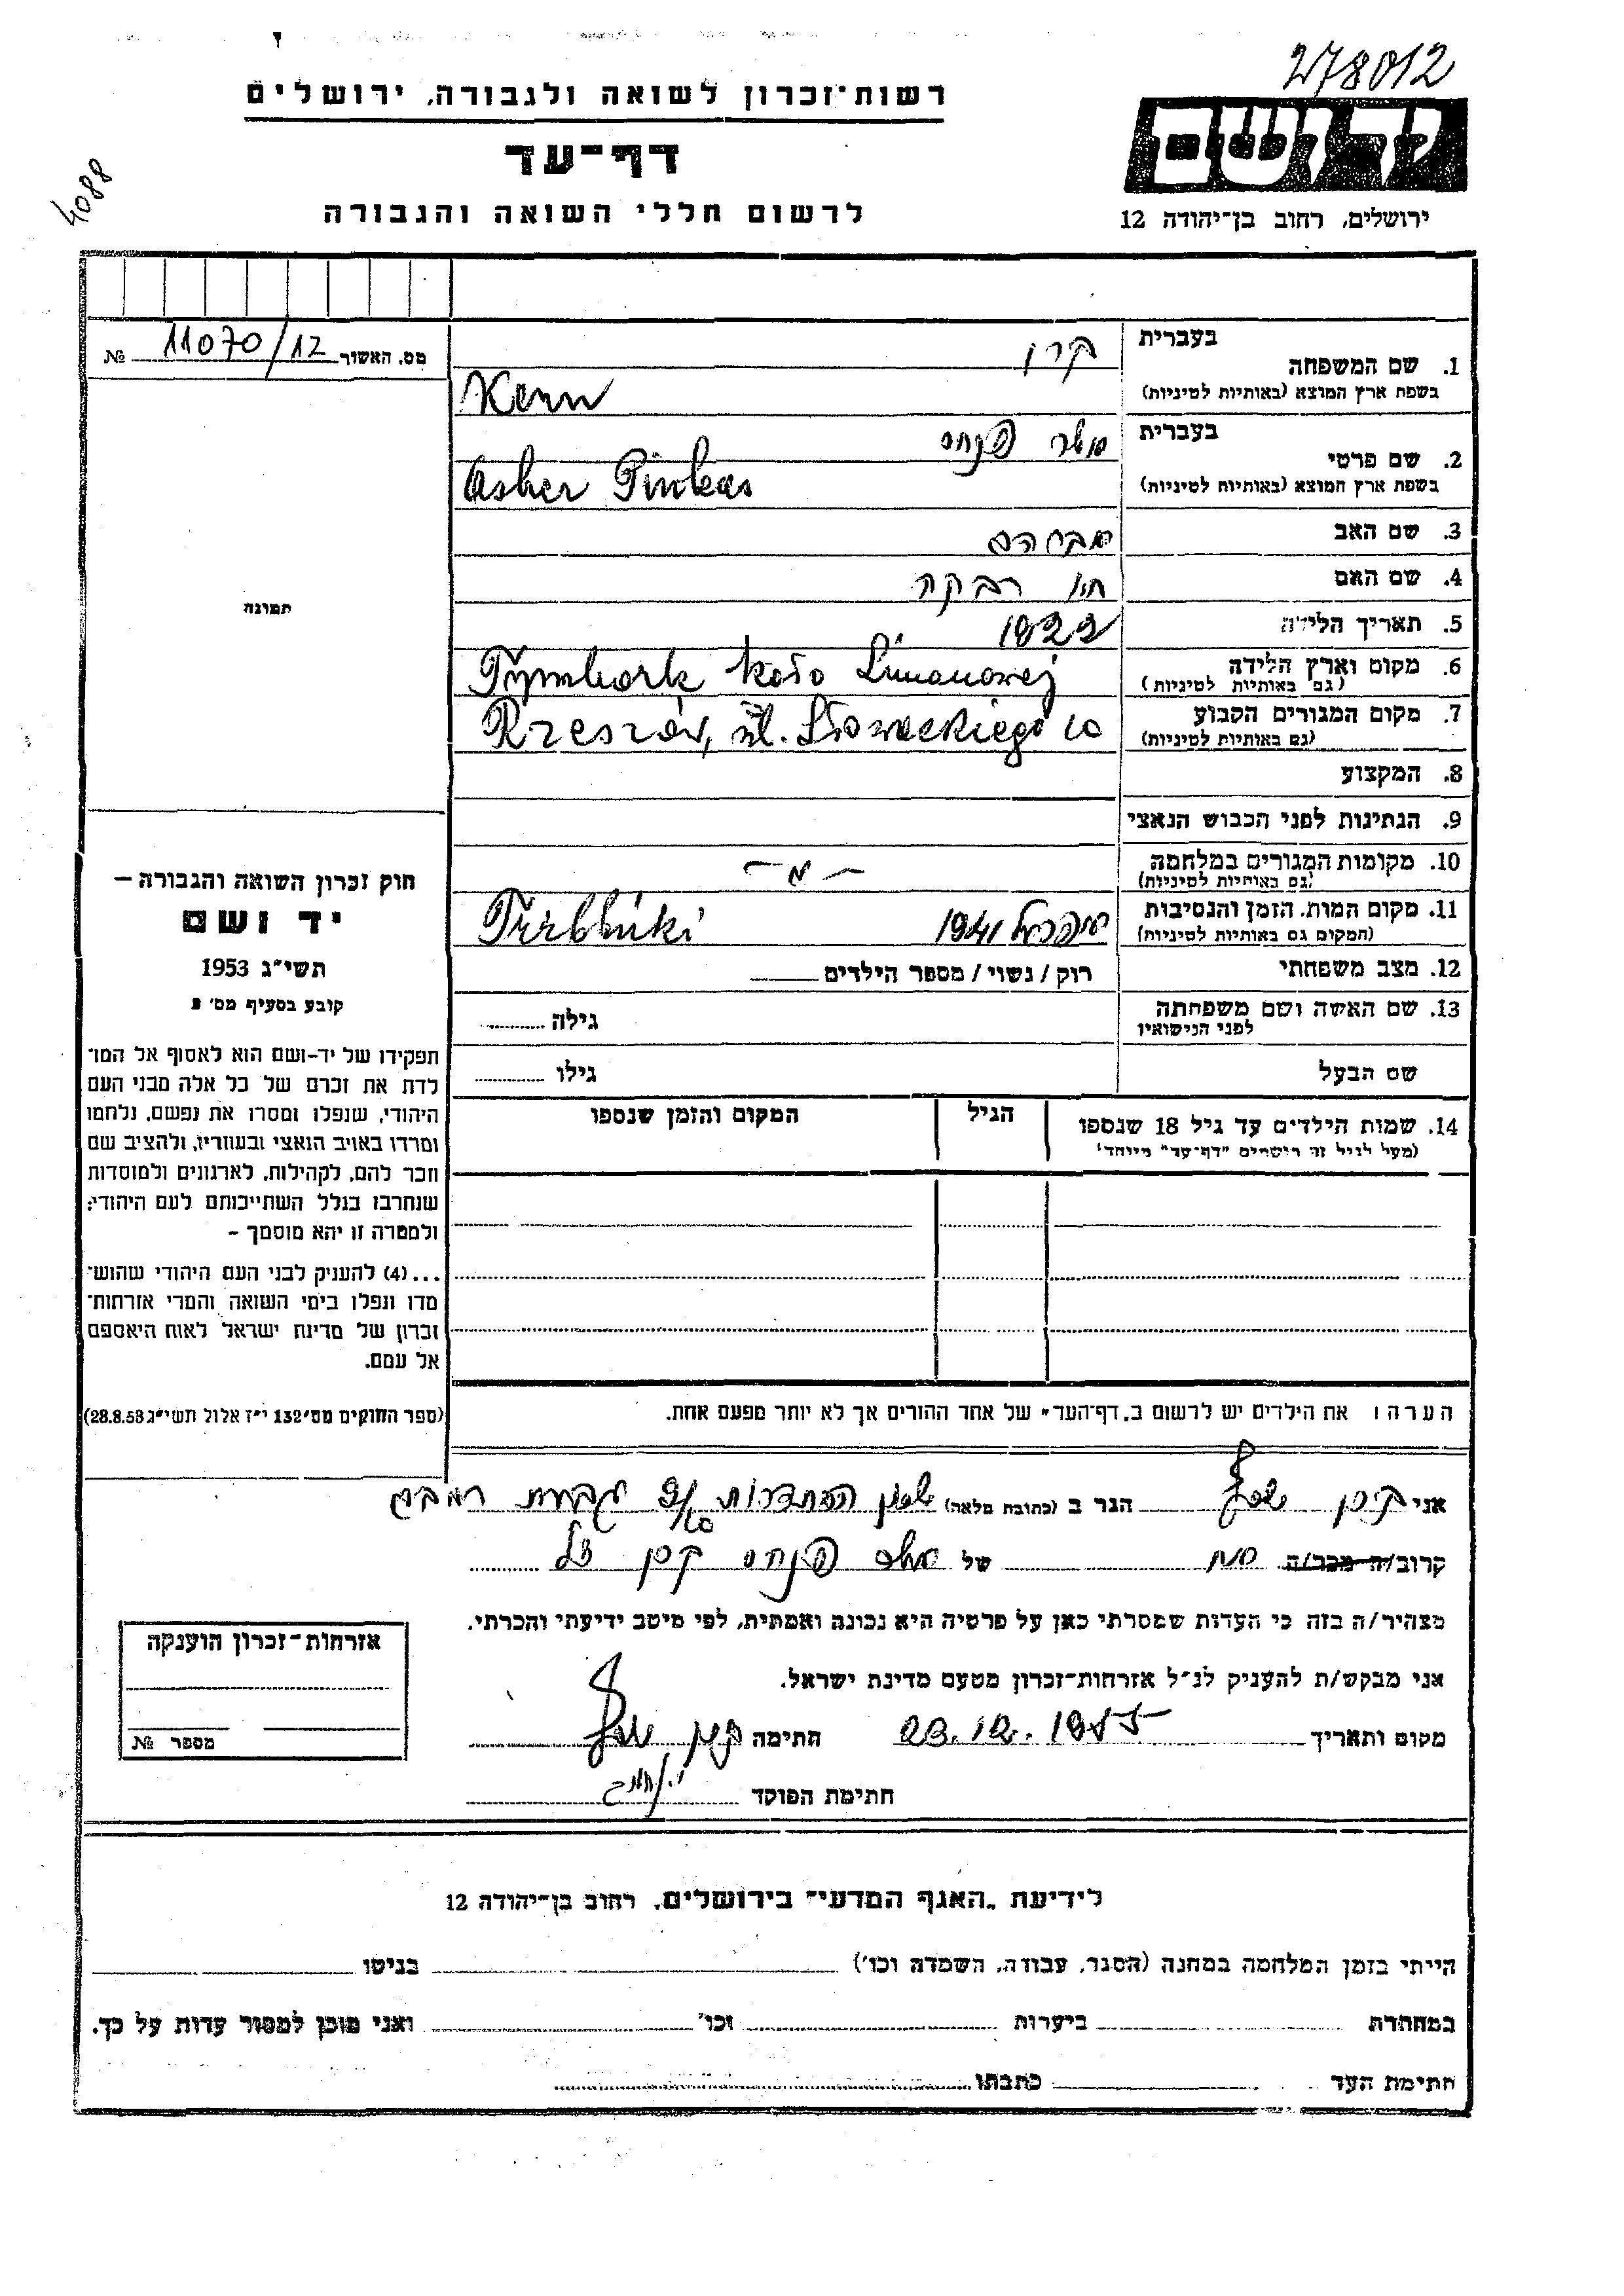 278012
רשות־זכרון לשואה ולגבורה, ירושלים
דף־עד
לרשום חללי השואה והגבורה
4088
יד ושם
ירושלים, רחוב בן־יהודה 12
מס. האשור 11070/12 №
תמונה
1. שם המשפחה בעברית קרן
בשפת ארץ המוצא (באותיות לטיניות) Kern
2. שם פרטי בעברית אשר פנחס
בשפת ארץ המוצא (באותיות לטיניות) Asher Pinkas
3. שם האב אברהם
4. שם האם חיה רבקה
5. תאריך הלידה 1922
6. מקום וארץ הלידה (גם באותיות לטיניות) Tymbark koło Limanowej
7. מקום המגורים הקבוע (גם באותיות לטיניות) Rzeszów, ul. Słowackiego 10
8. המקצוע
9. הנתינות לפני הכבוש הנאצי
10. מקומות המגורים במלחמה (גם באותיות לטיניות)
11. מקום המות, הזמן והנסיבות (המקום גם באותיות לטיניות) אפריל 1941
12. מצב משפחתי רוק / נשוי / מספר הילדים
13. שם האשה ושם משפחתה לפני הנישואין גילה
שם הבעל גילו
14. שמות הילדים עד גיל 18 שנספו הגיל המקום והזמן שנספו
(מעל לגיל זה רושמים "דף־עד" מיוחד)
חוק זכרון השואה והגבורה —
יד ושם
תשי"ג 1953
קובע בסעיף מס' 2
תפקידו של יד-ושם הוא לאסוף אל המו־
לדת את זכרם של כל אלה מבני העם
היהודי, שנפלו ומסרו את נפשם, נלחמו
ומרדו באויב הנאצי ובעוזריו, ולהציב שם
וזכר להם, לקהילות, לארגונים ולמוסדות
שנחרבו בגלל השתייכותם לעם היהודי;
ולמטרה זו יהא מוסמך –
...(4) להעניק לבני העם היהודי שהוש־
מדו ונפלו בימי השואה והמרי אזרחות־
זכרון של מדינת ישראל לאות היאספם
אל עמם.
(ספר החוקים מס' 132 י"ז אלול תשי"ג 28.8.53)
הערה: את הילדים יש לרשום ב„דף־העד" של אחד ההורים אך לא יותר מפעם אחת.
אני קרן הגר ב (כתובת מלאה) שכון ההסתדרות גבעת רמבם
קרוב/ה מכר/ה אח של אשר פנחס קרן ז"ל
מצהיר/ה בזה כי העדות שמסרתי כאן על פרטיה היא נכונה ואמתית, לפי מיטב ידיעתי והכרתי.
אני מבקש/ת להעניק לנ"ל אזרחות־זכרון מטעם מדינת ישראל.
מקום ותאריך 23.12.1955 חתימה קרן
חתימת הפוקד
אזרחות־זכרון הוענקה
מספר №
לידיעת „האגף המדעי" בירושלים, רחוב בן־יהודה 12
הייתי בזמן המלחמה במחנה (הסגר, עבודה, השמדה וכו') בגיטו
במחתרת ביערות וכו' ואני מוכן למסור עדות על כך.
חתימת העד כתבתו